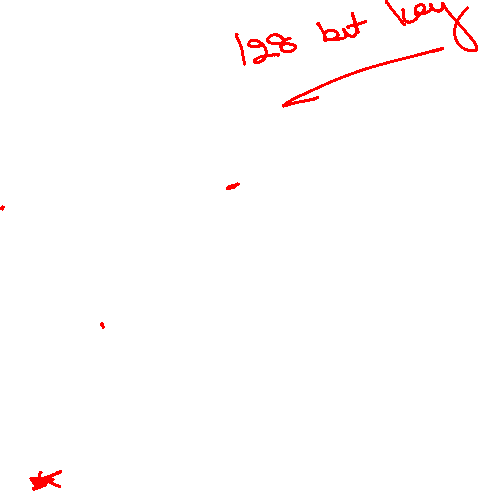 128 bit key